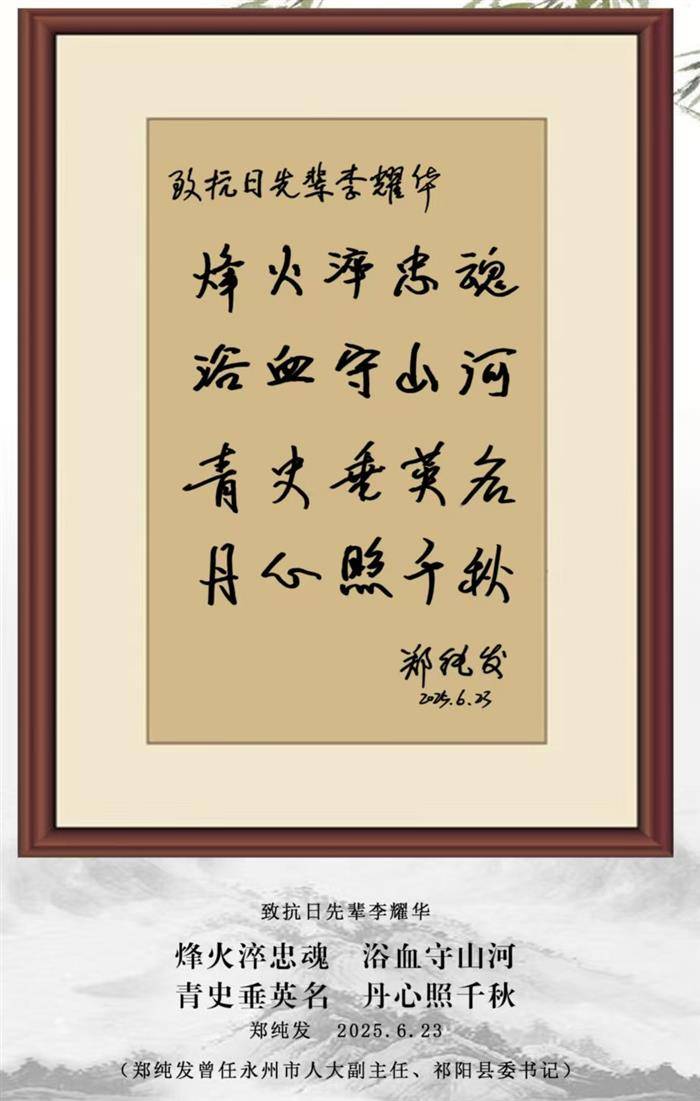 致抗日先辈李耀华
烽火淬忠魂
浴血守山河
青史垂英名
丹心照千秋
郑纯发
2025.6.23
致抗日先辈李耀华
烽火淬忠魂 浴血守山河
青史垂英名 丹心照千秋
郑纯发 2025.6.23
(郑纯发曾任永州市人大副主任、祁阳县委书记)